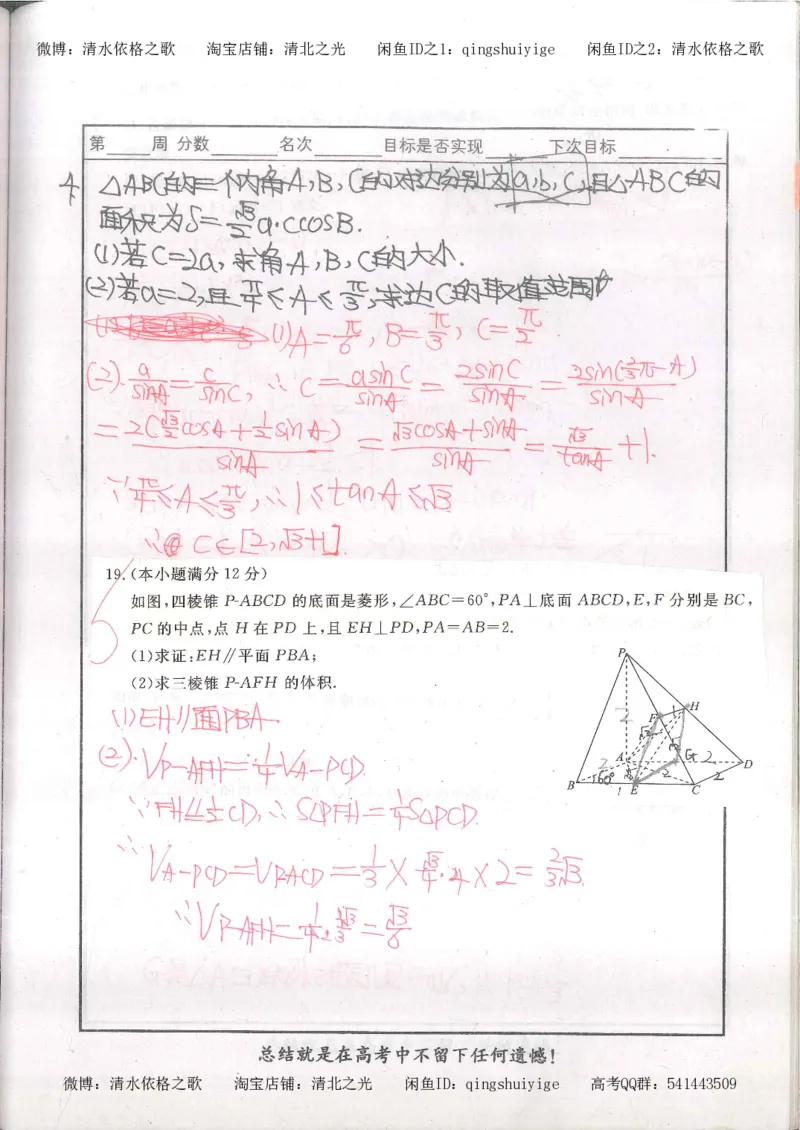 微博：清水依格之歌 淘宝店铺：清北之光 闲鱼ID之1：qingshuiyige 闲鱼ID之2：清水依格之歌
第____周 分数____名次____目标是否实现____下次目标____
4. △ABC的三个内角A,B,C的对边分别为a,b,c,且△ABC的
面积为S=√3/2 a·ccosB.
(1)若C=2a,求角A,B,C的大小.
(2)若a=2,且π/4≤A≤π/3,求边C的取值范围
(1)A=π/6, B=π/3, C=π/2
(2). a/sinA=c/sinC, ∴C=asinC/sinA=2sinC/sinA=2sin(2/3π-A)/sinA
=2(√3/2cosA+1/2sinA)/sinA=√3cosA+sinA/sinA=√3/tanA+1.
∵π/4≤A≤π/3, ∴1≤tanA≤√3
∴C∈[2,√3+1].
19.(本小题满分12分)
如图,四棱锥 P-ABCD 的底面是菱形,∠ABC=60°,PA⊥底面 ABCD,E,F 分别是 BC,
PC 的中点,点 H 在 PD 上,且 EH⊥PD,PA=AB=2.
(1)求证:EH∥平面 PBA;
(2)求三棱锥 P-AFH 的体积.
P
H
F
2
A
G
2
D
B
60°
1
E
2
C
2
(1)EH∥面PBA
(2). VP-AFH=1/4VA-PCD.
∵FH∥=1/2CD, ∴S△PFH=1/4S△PCD.
∴VA-PCD=VP-ACD=1/3×√3/4·4×2=2/3√3.
∴VP-AFH=1/4·2√3/3=√3/6
总结就是在高考中不留下任何遗憾!
微博：清水依格之歌 淘宝店铺：清北之光 闲鱼ID：qingshuiyige 高考QQ群：541443509